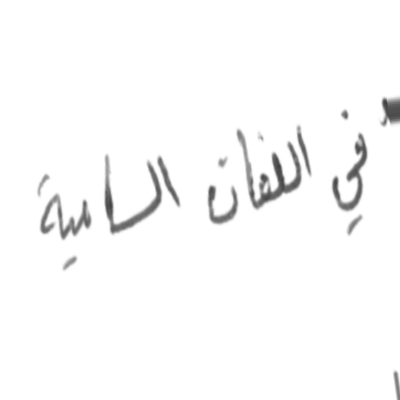 في اللغات السامية